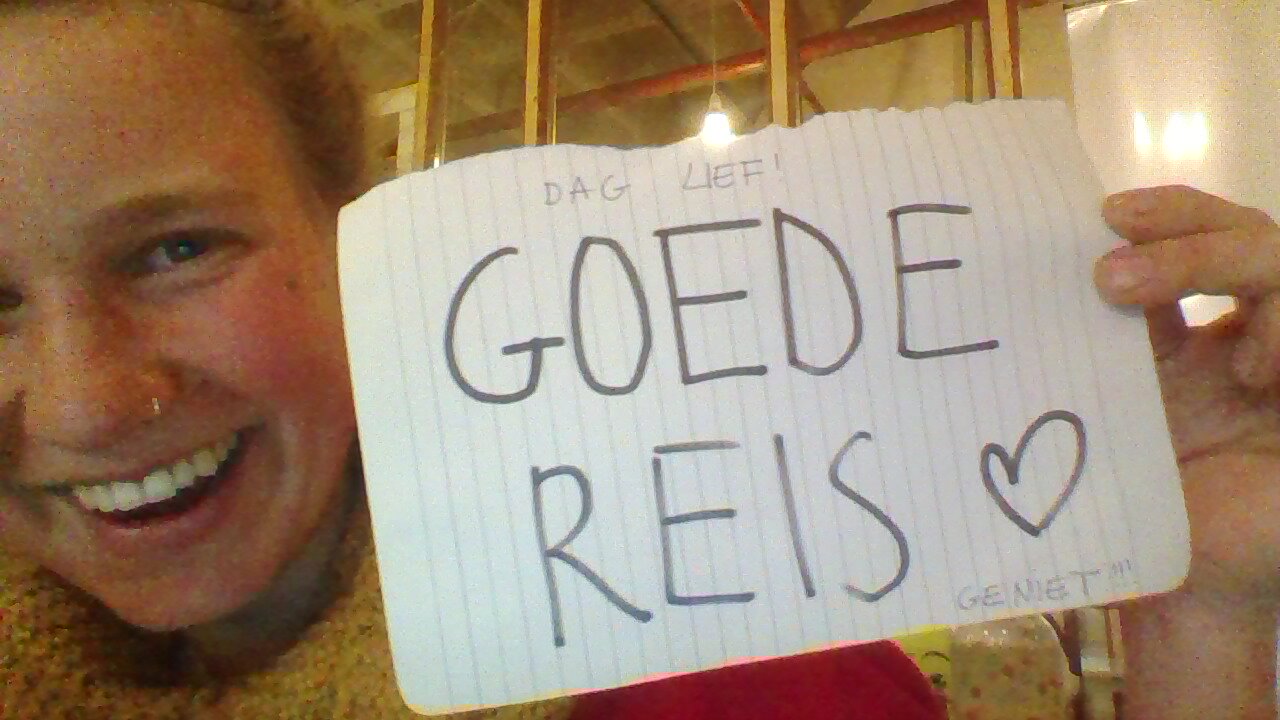 DAG LIEF!
GOEDE
REIS ♡
GENIET!!!!